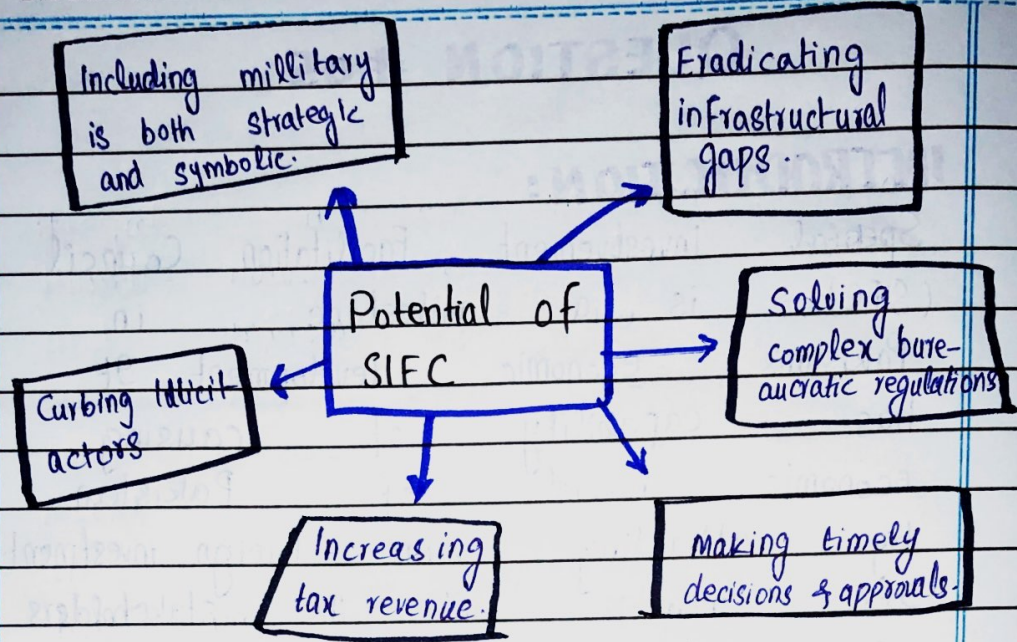 Including millitary
is both strategic
and symbolic.
Eradicating
infrastructural
gaps.
Potential of
SIFC
Solving
complex bure-
aucratic regulations
Curbing Illicit
actors
Increasing
tax revenue.
Making timely
decisions & approvals.